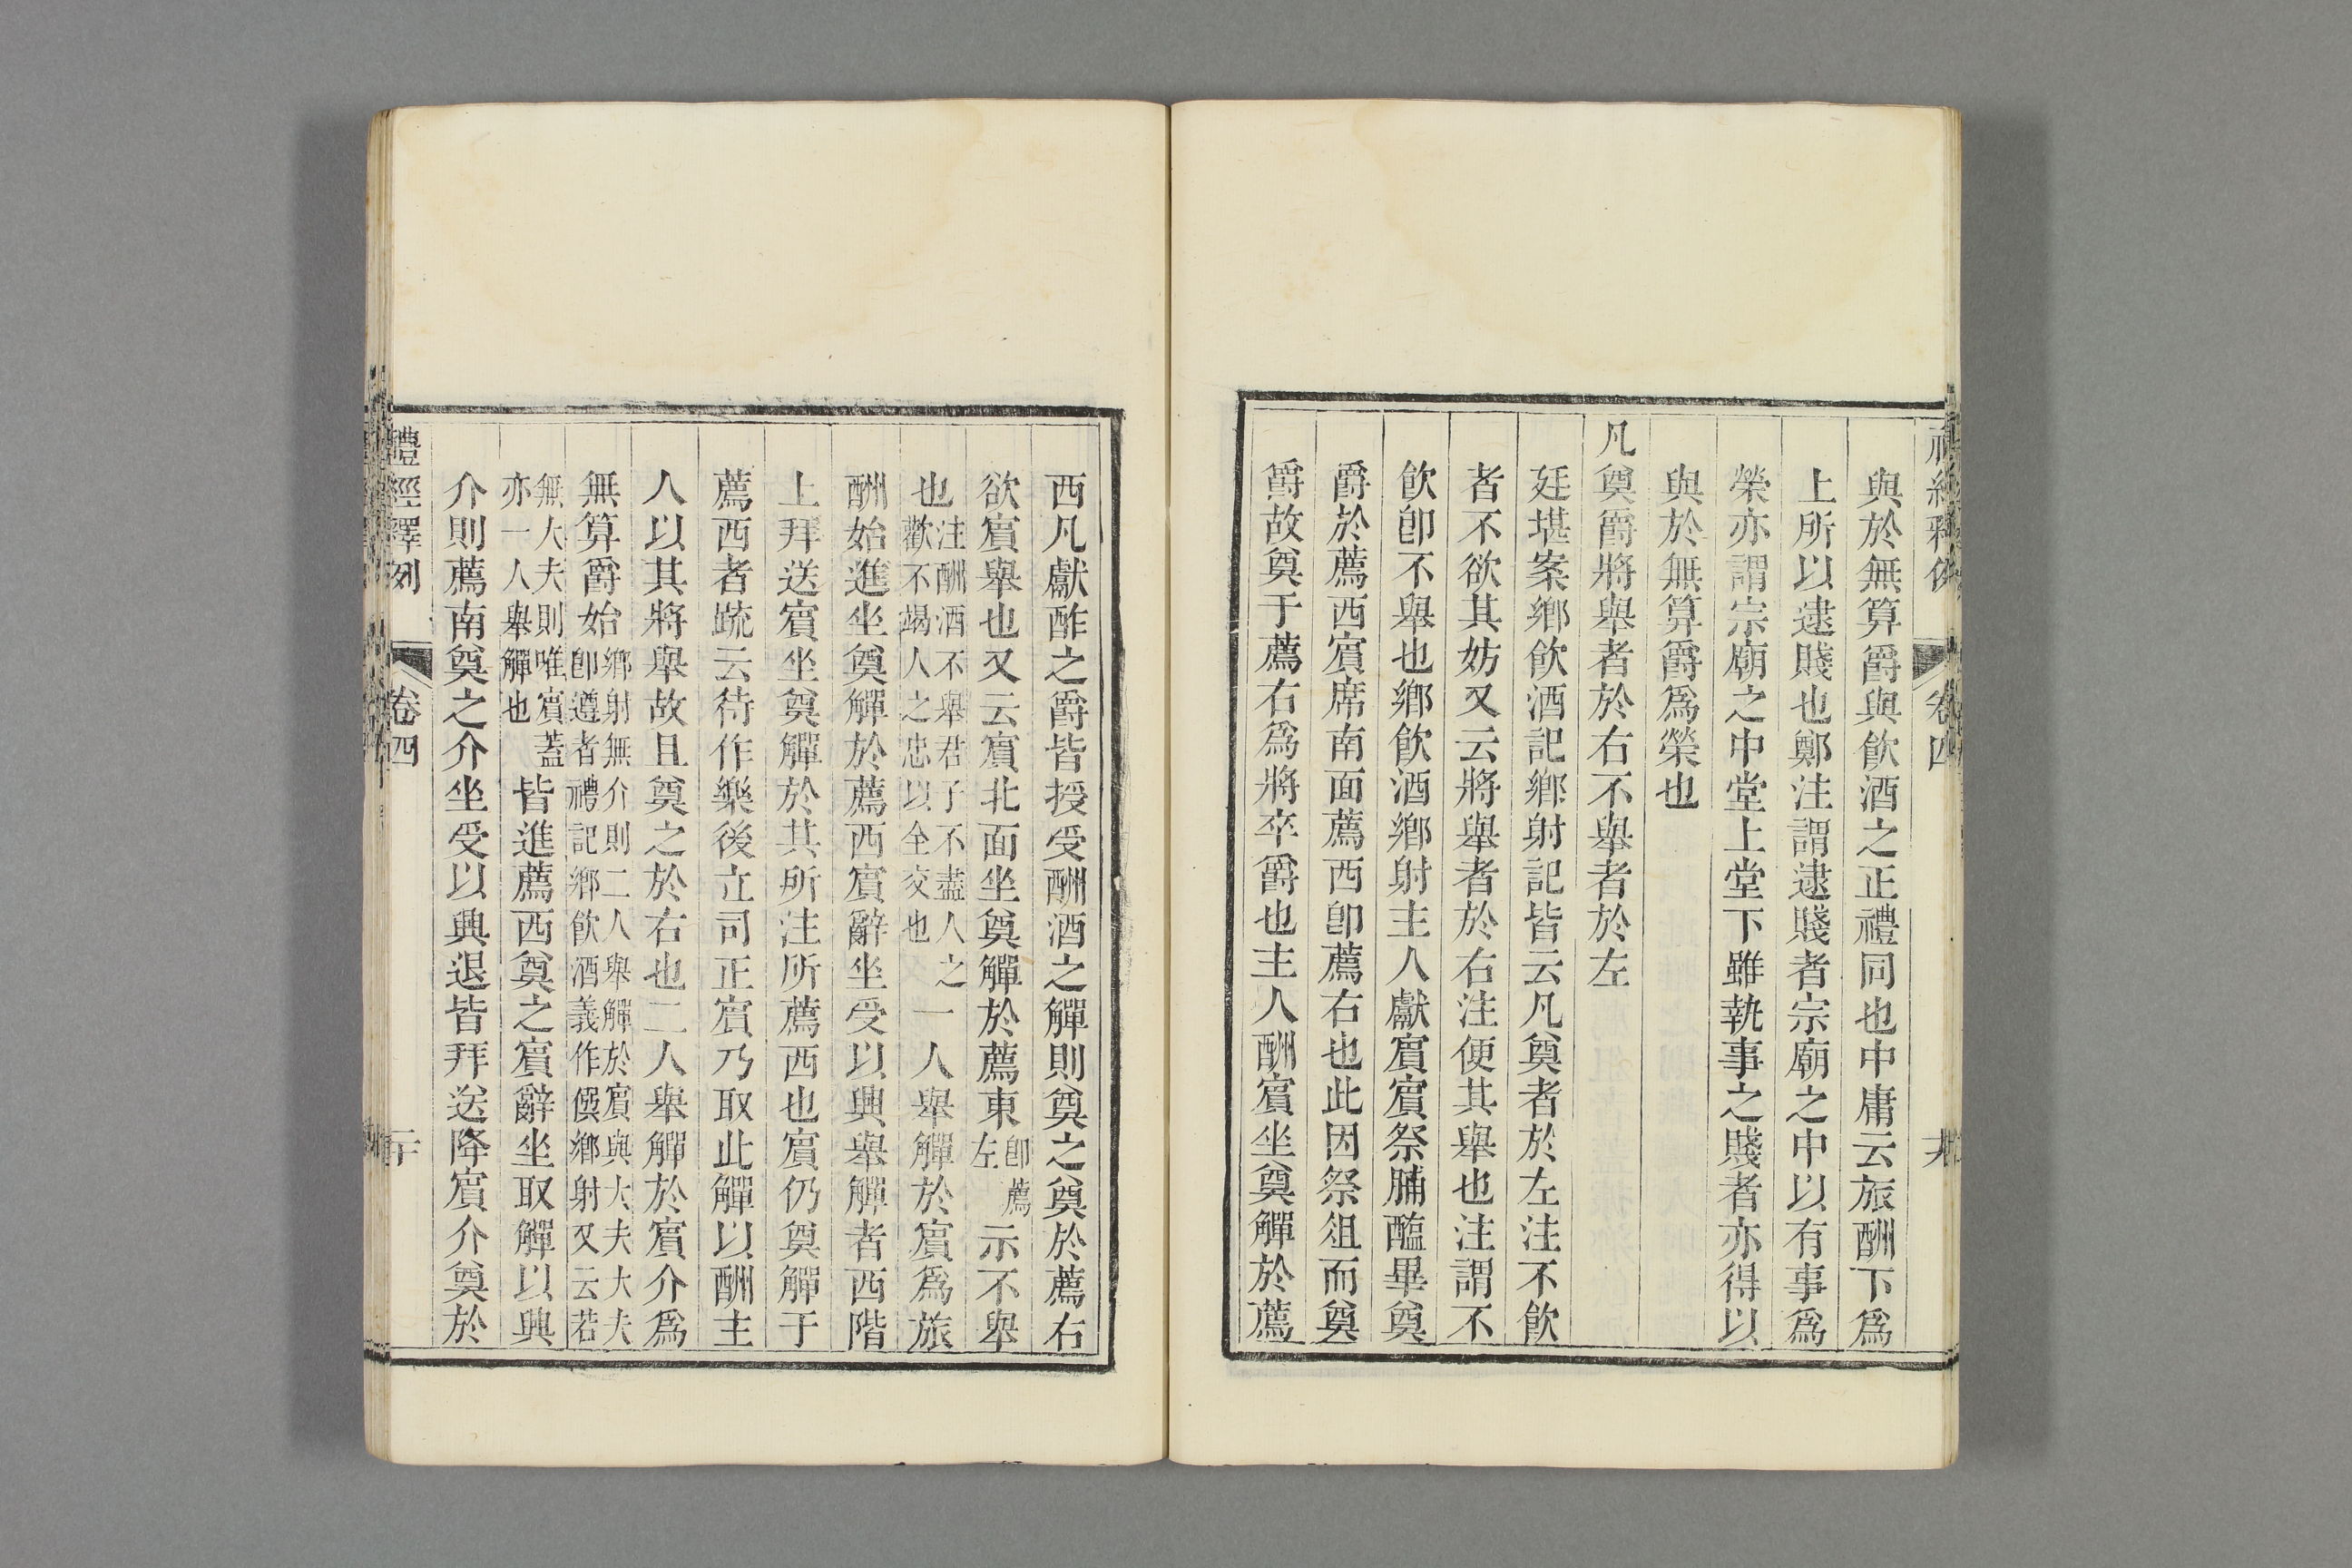 與於無算爵與飲酒之正禮同也中庸云旅酬下爲
上所以逮賤也鄭注謂逮賤者宗廟之中以有事爲
榮亦謂宗廟之中堂上堂下雖執事之賤者亦得以
與於無算爵爲榮也
凡奠爵將舉者於右不舉者於左
廷堪案鄉飲酒記鄉射記皆云凡奠者於左注不飲
者不欲其妨又云將舉者於右注便其舉也注謂不
飲卽不舉也鄉飲酒鄉射主人獻賓賓祭脯醢畢奠
爵於薦西賓席南面薦西卽薦右也此因祭俎而奠
爵故奠于薦右爲將卒爵也主人酬賓坐奠觶於薦
西凡獻酢之爵皆授受酬酒之觶則奠之奠於薦右
欲賓舉也又云賓北面坐奠觶於薦東卽薦左示不舉
也注酬酒不舉君子不盡人之歡不竭人之忠以全交也一人舉觶於賓爲旅
酬始進坐奠觶於薦西賓辭坐受以興舉觶者西階
上拜送賓坐奠觶於其所注所薦西也賓仍奠觶于
薦西者疏云待作樂後立司正賓乃取此觶以酬主
人以其將舉故且奠之於右也二人舉觶於賓介爲
無算爵始鄉射無介則二人舉觶於賓與大夫大夫卽遵者禮記鄉飲酒義作僎鄉射又云若
無大夫則唯賓蓋亦一人舉觶也皆進薦西奠之賓辭坐取觶以興
介則薦南奠之介坐受以興退皆拜送降賓介奠於
禮經釋例 卷四 二十